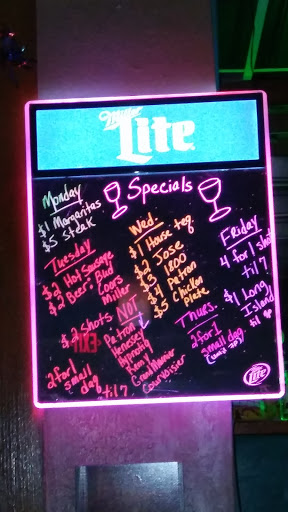 Miller
Lite
Specials
Monday
$1 Margaritas
$5 Steak
Tuesday
$2 Hot Sausage
$2 Beers Bud
Coors
Miller
$2 Shots NOT
Patron
Hennessy
Hypnotiq
Remy
Grand Marnier
Courvoisier
2 for 1
small dag
'til 7
Wed.
$1 House teq
$2 Jose
$5 1800
$4 Patron
$5 Chicken
Plate
Thurs.
2 for 1
small dag.
Friday
4 for 1 shot
til 7
$1 Long
Island
til 9
Lite
EXIT